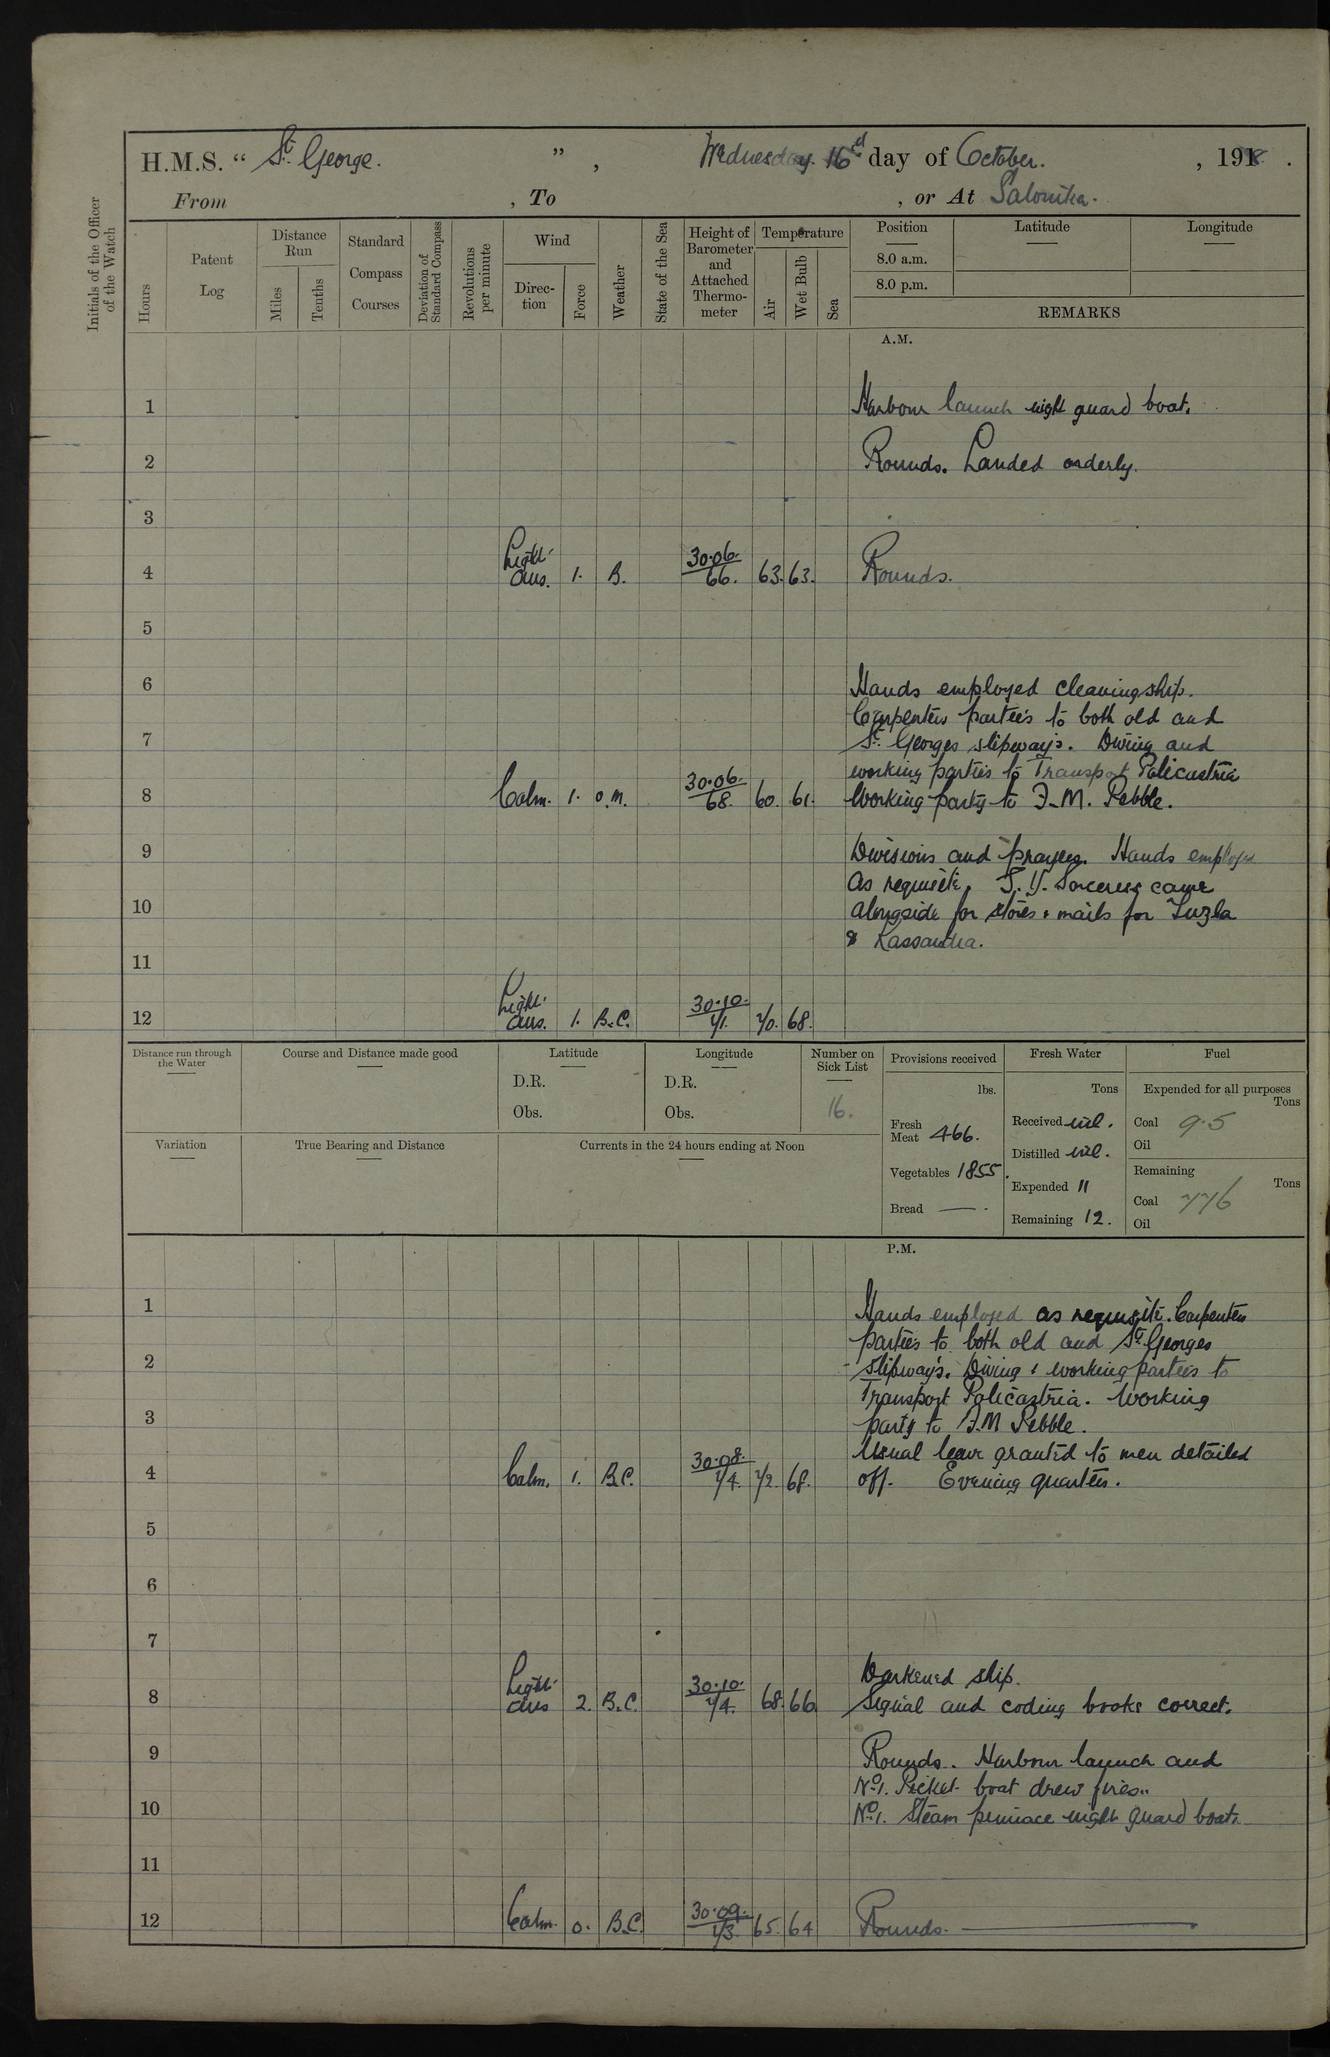 H.M.S. “ St. George. ” , Wednesday. 16th day of October. , 1918 .
From , To , or At Salonika.
Initials of the Officer of the Watch
Hours
Patent Log
Distance Run
Miles
Tenths
Standard Compass Courses
Deviation of Standard Compass
Revolutions per minute
Wind
Direction
Force
Weather
State of the Sea
Height of Barometer and Attached Thermometer
Temperature
Air
Wet Bulb
Sea
Position Latitude Longitude
8.0 a.m.
8.0 p.m.
REMARKS
A.M.
1 Harbour launch night guard boat.
2 Rounds. Landed orderly.
3
4 Light airs. 1. B. 30.06. 66. 63. 63. Rounds.
5
6 Hands employed cleaning ship.
Carpenters parties to both old and
7 St. Georges slipways. Diving and
working parties to Transport Policastria
8 Calm. 1. O.M. 30.06. 68. 60. 61. Working party to F.M. Pebble.
9 Divisions and prayers. Hands employed
as requisite. S.Y. Sorceress came
10 alongside for stores & mails for Tuzla
& Kassandra.
11
12 Light airs. 1. B.C. 30.10. 71. 70. 68.
Distance run through the Water
Course and Distance made good
Latitude
D.R.
Obs.
Longitude
D.R.
Obs.
Number on Sick List
16.
Provisions received
lbs.
Fresh Meat 466.
Vegetables 1855.
Bread — .
Fresh Water
Tons
Received nil.
Distilled nil.
Expended 11
Remaining 12.
Fuel
Expended for all purposes
Tons
Coal 9.5
Oil
Remaining
Tons
Coal 776
Oil
Variation
True Bearing and Distance
Currents in the 24 hours ending at Noon
P.M.
1 Hands employed as requisite. Carpenters
parties to both old and St. Georges
2 slipways. Diving & working parties to
Transport Policastria. Working
3 party to F.M Pebble.
Usual leave granted to men detailed
4 Calm. 1. B.C. 30.08. 74. 72. 68. off. Evening quarters.
5
6
7
Darkened ship.
8 Light airs 2. B.C. 30.10. 74. 68. 66 Signal and coding books correct.
9 Rounds. Harbour launch and
No 1. Picket boat drew fires.
10 No 1. Steam pinnace night guard boat.
11
12 Calm. 0. B.C. 30.09. 73. 65. 64 Rounds.